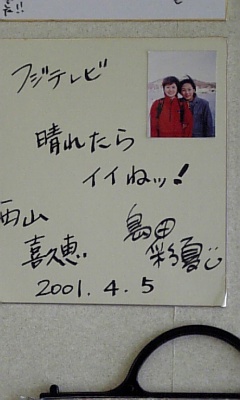 長!!
フジテレビ
晴れたら
イイねッ!
西山
喜久恵
島田
彩夏
2001.4.5